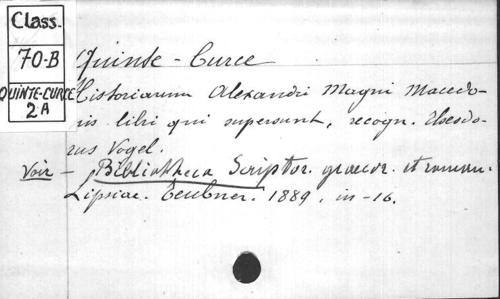 Class.
70-B
QUINTE-CURCE
2A
Quinte-Curce
Historiarum Alexandri Magni Macedo-
nis libri qui supersunt, recogn. Theodo-
rus Vogel.
Voir - Bibliotheca Scriptor. graecor. et roman.
Lipsiae. Teubner. 1889. in-16.